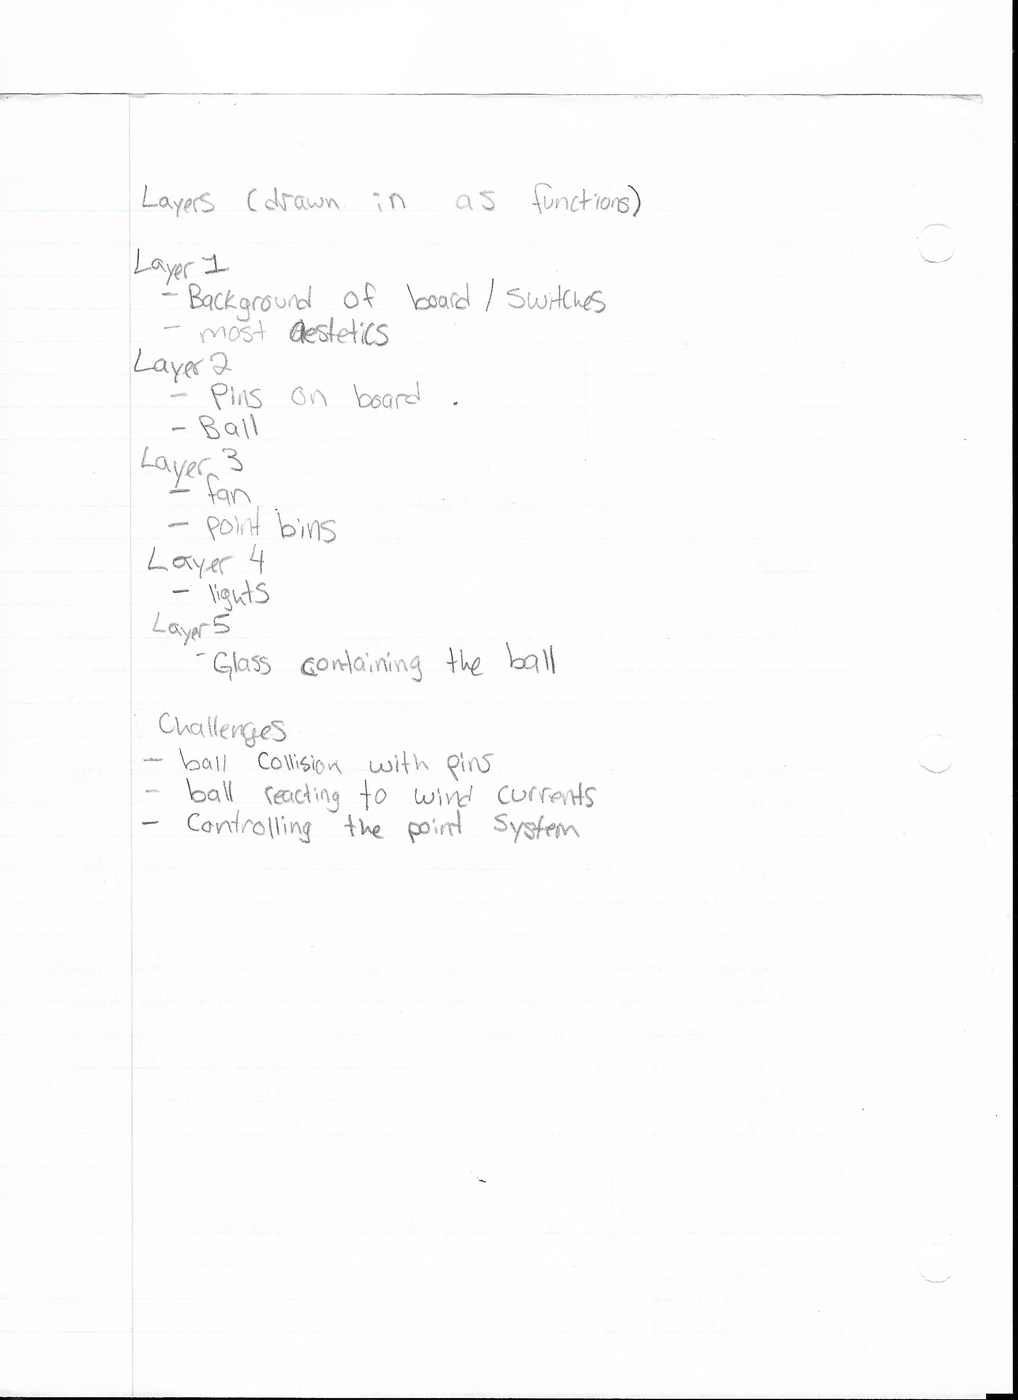 Layers (drawn in as functions)
Layer 1
- Background of board / switches
- most aestetics
Layer 2
- Pins on board .
- Ball
Layer 3
- fan
- point bins
Layer 4
- lights
Layer 5
- Glass containing the ball
Challenges
- ball collision with pins
- ball reacting to wind currents
- Controlling the point system